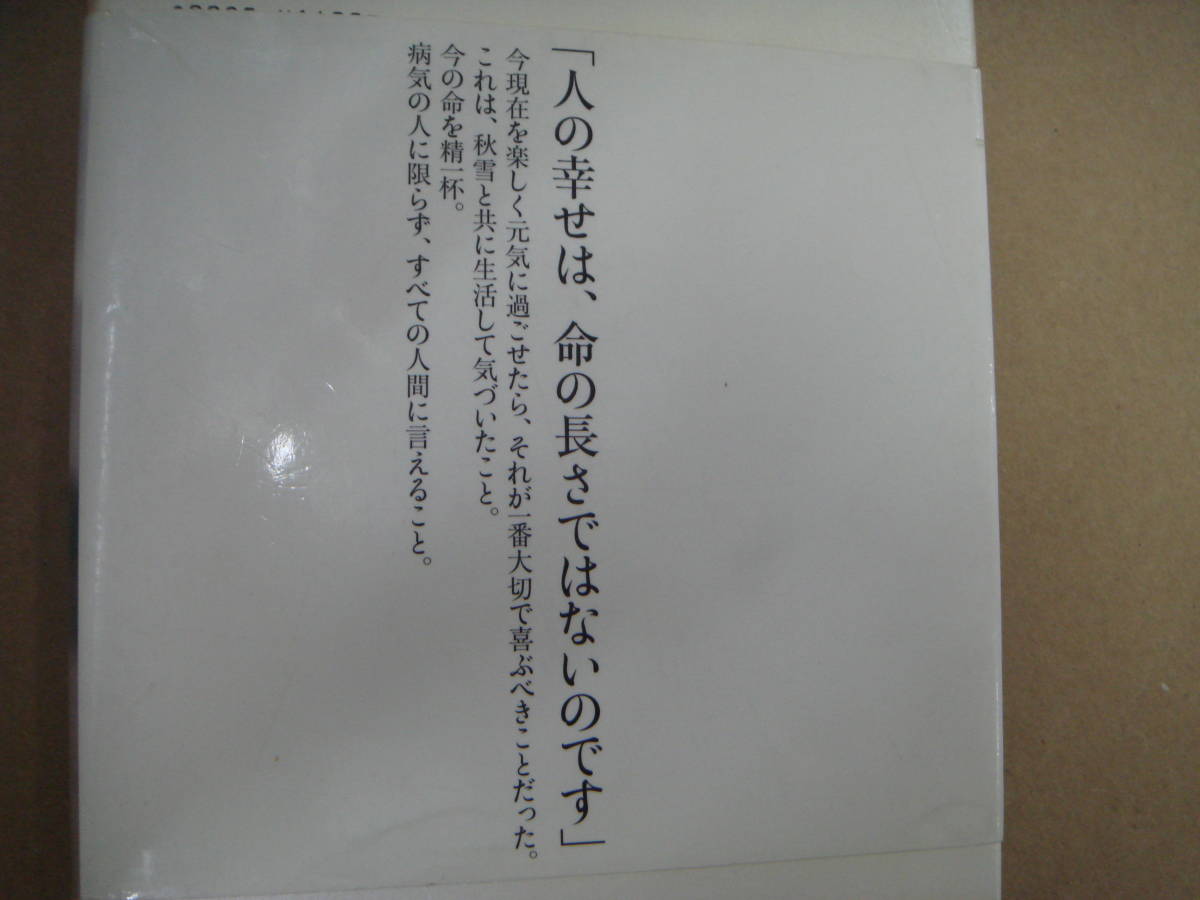 「人の幸せは、命の長さではないのです」
今現在を楽しく元気に過ごせたら、それが一番大切で喜ぶべきことだった。
これは、秋雪と共に生活して気づいたこと。
今の命を精一杯。
病気の人に限らず、すべての人間に言えること。